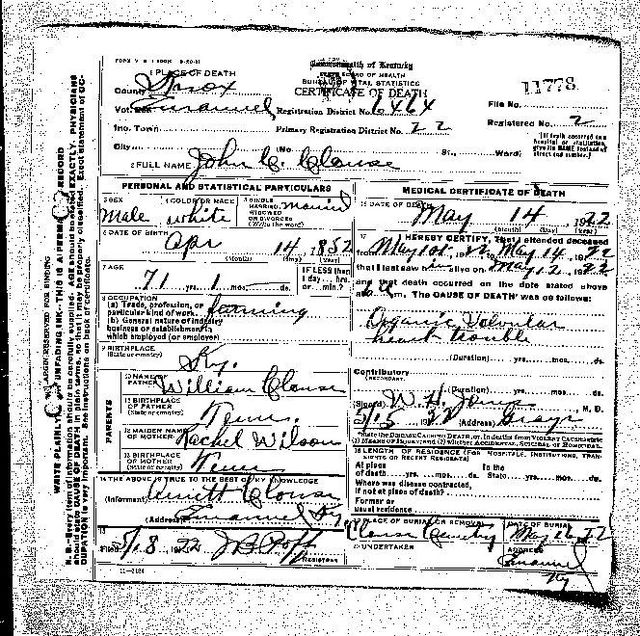 FORM V. S. 1
Commonwealth of Kentucky
STATE BOARD OF HEALTH
BUREAU OF VITAL STATISTICS
CERTIFICATE OF DEATH
1 PLACE OF DEATH
County Knox
Vot. Emanuel
Registration District No. 6464
File No. 11778
Inc. Town
Primary Registration District No. 22
Registered No. 2
City
No.
St.,
Ward)
(If death occurred in a hospital or institution, give its NAME instead of street and number.)
2 FULL NAME John C. Clouse
PERSONAL AND STATISTICAL PARTICULARS
3 SEX
Male
4 COLOR OR RACE
white
5 SINGLE
MARRIED
WIDOWED
OR DIVORCED
(Write the word)
married
6 DATE OF BIRTH
Apr 14 1852
(Month) (Day) (Year)
7 AGE
71 yrs. 1 mos. ds.
IF LESS than
1 day... hrs.
or... min.?
8 OCCUPATION
(a) Trade, profession, or
particular kind of work farming
(b) General nature of industry
business or establishment in
which employed (or employer)
9 BIRTHPLACE
(State or country)
Ky.
PARENTS
10 NAME OF
FATHER
William Clouse
11 BIRTHPLACE
OF FATHER
(State or country)
Tenn.
12 MAIDEN NAME
OF MOTHER
Rachel Wilson
13 BIRTHPLACE
OF MOTHER
(State or country)
Tenn
14 THE ABOVE IS TRUE TO THE BEST OF MY KNOWLEDGE
(Informant) Clouse
(Address) Emanuel Ky
15
Filed 5/18 1922
REGISTRAR
MEDICAL CERTIFICATE OF DEATH
16 DATE OF DEATH
May 14 1922
(Month) (Day) (Year)
17
I HEREBY CERTIFY, That I attended deceased
from May 1st 1922, May 14 1922
that I last saw alive on May 12 1922
and that death occurred on the date stated above
at m. The CAUSE OF DEATH was as follows:
Organic Valvular
heart trouble
(Duration) yrs. mos. ds.
Contributory
(SECONDARY)
(Duration) yrs. mos. ds.
(Signed) W. H. M. D.
5/15 22 (Address) Grays
*State the DISEASE CAUSING DEATH, or, in deaths from VIOLENT CAUSES state
(1) MEANS OF INJURY; and (2) whether ACCIDENTAL, SUICIDAL or HOMICIDAL.
18 LENGTH OF RESIDENCE (FOR HOSPITALS, INSTITUTIONS, TRANSIENTS OR RECENT RESIDENTS)
At place
of death yrs. mos. ds.
In the
State yrs. mos. ds.
Where was disease contracted,
if not at place of death?
Former or
usual residence
19 PLACE OF BURIAL OR REMOVAL
Clouse Cemetery
DATE OF BURIAL
May 16 22
20 UNDERTAKER
ADDRESS
Emanuel
Ky
11-3184
MARGIN RESERVED FOR BINDING
WRITE PLAINLY, WITH UNFADING INK—THIS IS A PERMANENT RECORD
N. B.—Every item of information should be carefully supplied. AGE should be stated EXACTLY. PHYSICIANS
should state CAUSE OF DEATH in plain terms, so that it may be properly classified. Exact statement of OCCUPATION
is very important. See instructions on back of certificate.